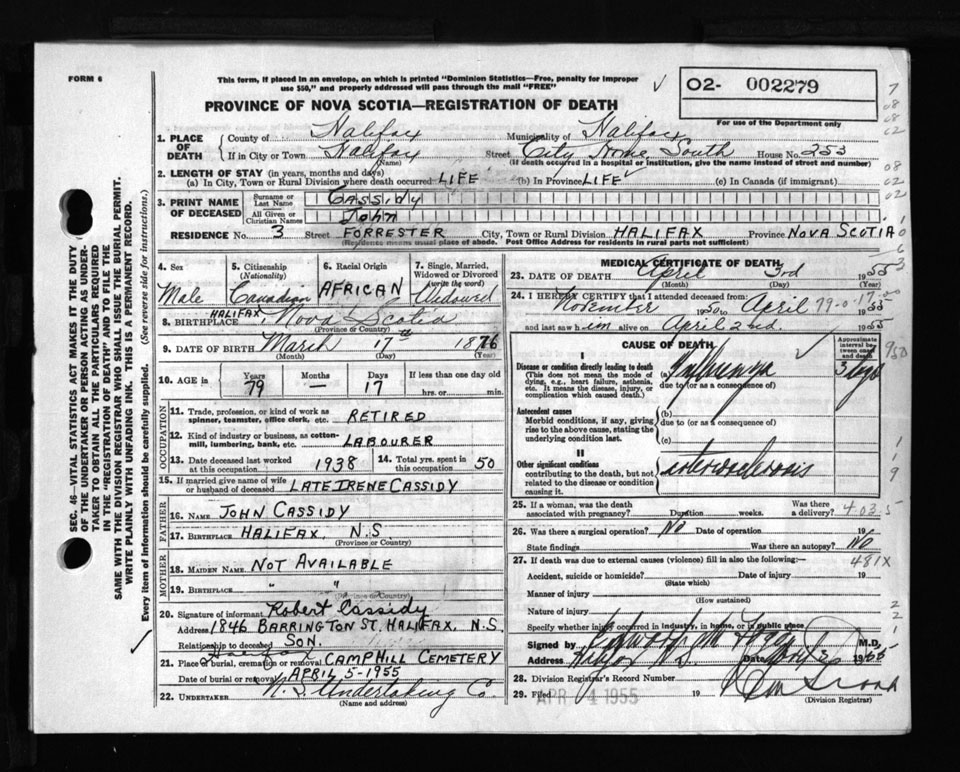 FORM 6
This form, if placed in an envelope, on which is printed "Dominion Statistics—Free, penalty for improper
use $50," and properly addressed will pass through the mail "FREE"
PROVINCE OF NOVA SCOTIA—REGISTRATION OF DEATH
O2- 002279
For use of the Department only
SEC. 46—VITAL STATISTICS ACT MAKES IT THE DUTY
OF THE UNDERTAKER OR PERSON ACTING AS UNDER-
TAKER TO OBTAIN ALL THE PARTICULARS REQUIRED
IN THE "REGISTRATION OF DEATH" AND TO FILE THE
SAME WITH THE DIVISION REGISTRAR WHO SHALL ISSUE THE BURIAL PERMIT.
WRITE PLAINLY WITH UNFADING INK. THIS IS A PERMANENT RECORD.
Every item of information should be carefully supplied. (See reverse side for instructions.)
1. PLACE OF DEATH
County of Halifax Municipality of Halifax
If in City or Town Halifax Street City Home South House No. 253
(Name) (If death occurred in a hospital or institution, give the name instead of street and number)
2. LENGTH OF STAY (in years, months and days)
(a) In City, Town or Rural Division where death occurred LIFE (b) In Province LIFE (c) In Canada (if immigrant)
3. PRINT NAME OF DECEASED
Surname or Last Name Cassidy
All Given or Christian Names John
RESIDENCE No. 3 Street FORRESTER City or Town HALIFAX Province NOVA SCOTIA
(Residence means usual place of abode. Post Office Address for residents in rural parts not sufficient)
4. Sex Male
5. Citizenship (Nationality) Canadian
6. Racial Origin AFRICAN
7. Single, Married, Widowed or Divorced (write the word) Widowed
8. BIRTHPLACE HALIFAX, Nova Scotia
(Province or Country)
9. DATE OF BIRTH March 17th 1876
(Month) (Day) (Year)
10. AGE in Years 79 Months — Days 17 If less than one day old
hrs. or min.
OCCUPATION
11. Trade, profession, or kind of work as
spinner, teamster, office clerk, etc. RETIRED
12. Kind of industry or business, as cotton-
mill, lumbering, bank, etc. LABOURER
13. Date deceased last worked at this occupation 1938 14. Total yrs. spent in this occupation 50
15. If married give name of wife
or husband of deceased LATE IRENE CASSIDY
FATHER
16. NAME JOHN CASSIDY
17. BIRTHPLACE HALIFAX, N.S
(Province or Country)
MOTHER
18. MAIDEN NAME NOT AVAILABLE
19. BIRTHPLACE " "
(Province or Country)
20. Signature of informant Robert Cassidy
Address 1846 BARRINGTON ST, HALIFAX, N.S.
Relationship to deceased SON.
21. Place of burial, cremation or removal CAMPHILL CEMETERY
Date of burial or removal APRIL 5-1955
22. UNDERTAKER N.S. Undertaking Co.
(Name and address)
MEDICAL CERTIFICATE OF DEATH
23. DATE OF DEATH April 3rd 1955
(Month) (Day) (Year)
24. I HEREBY CERTIFY that I attended deceased from:
November 1950 to April 1955
and last saw him alive on April 2nd. 1955
CAUSE OF DEATH
Approximate interval between onset and death
I
Disease or condition directly leading to death
(This does not mean the mode of
dying, e.g., heart failure, asthenia,
etc. It means the disease, injury, or
complication which caused death.)
(a) Influenza 3 days
due to (or as a consequence of)
Antecedent causes
Morbid conditions, if any, giving
rise to the above cause, stating the
underlying condition last.
(b)
due to (or as a consequence of)
(c)
II
Other significant conditions
contributing to the death, but not
related to the disease or condition
causing it.
arteriosclerosis
25. If a woman, was the death associated with pregnancy? Duration weeks. Was there a delivery?
26. Was there a surgical operation? No Date of operation 19
State findings Was there an autopsy? No
27. If death was due to external causes (violence) fill in also the following:— 481X
Accident, suicide or homicide? Date of injury 19
(State which)
Manner of injury
(How sustained)
Nature of injury
Specify whether injury occurred in industry, in home, or in public place
Signed by M.D.
Address Date 1955
28. Division Registrar's Record Number
29. Filed APR 4 1955 19
(Division Registrar)